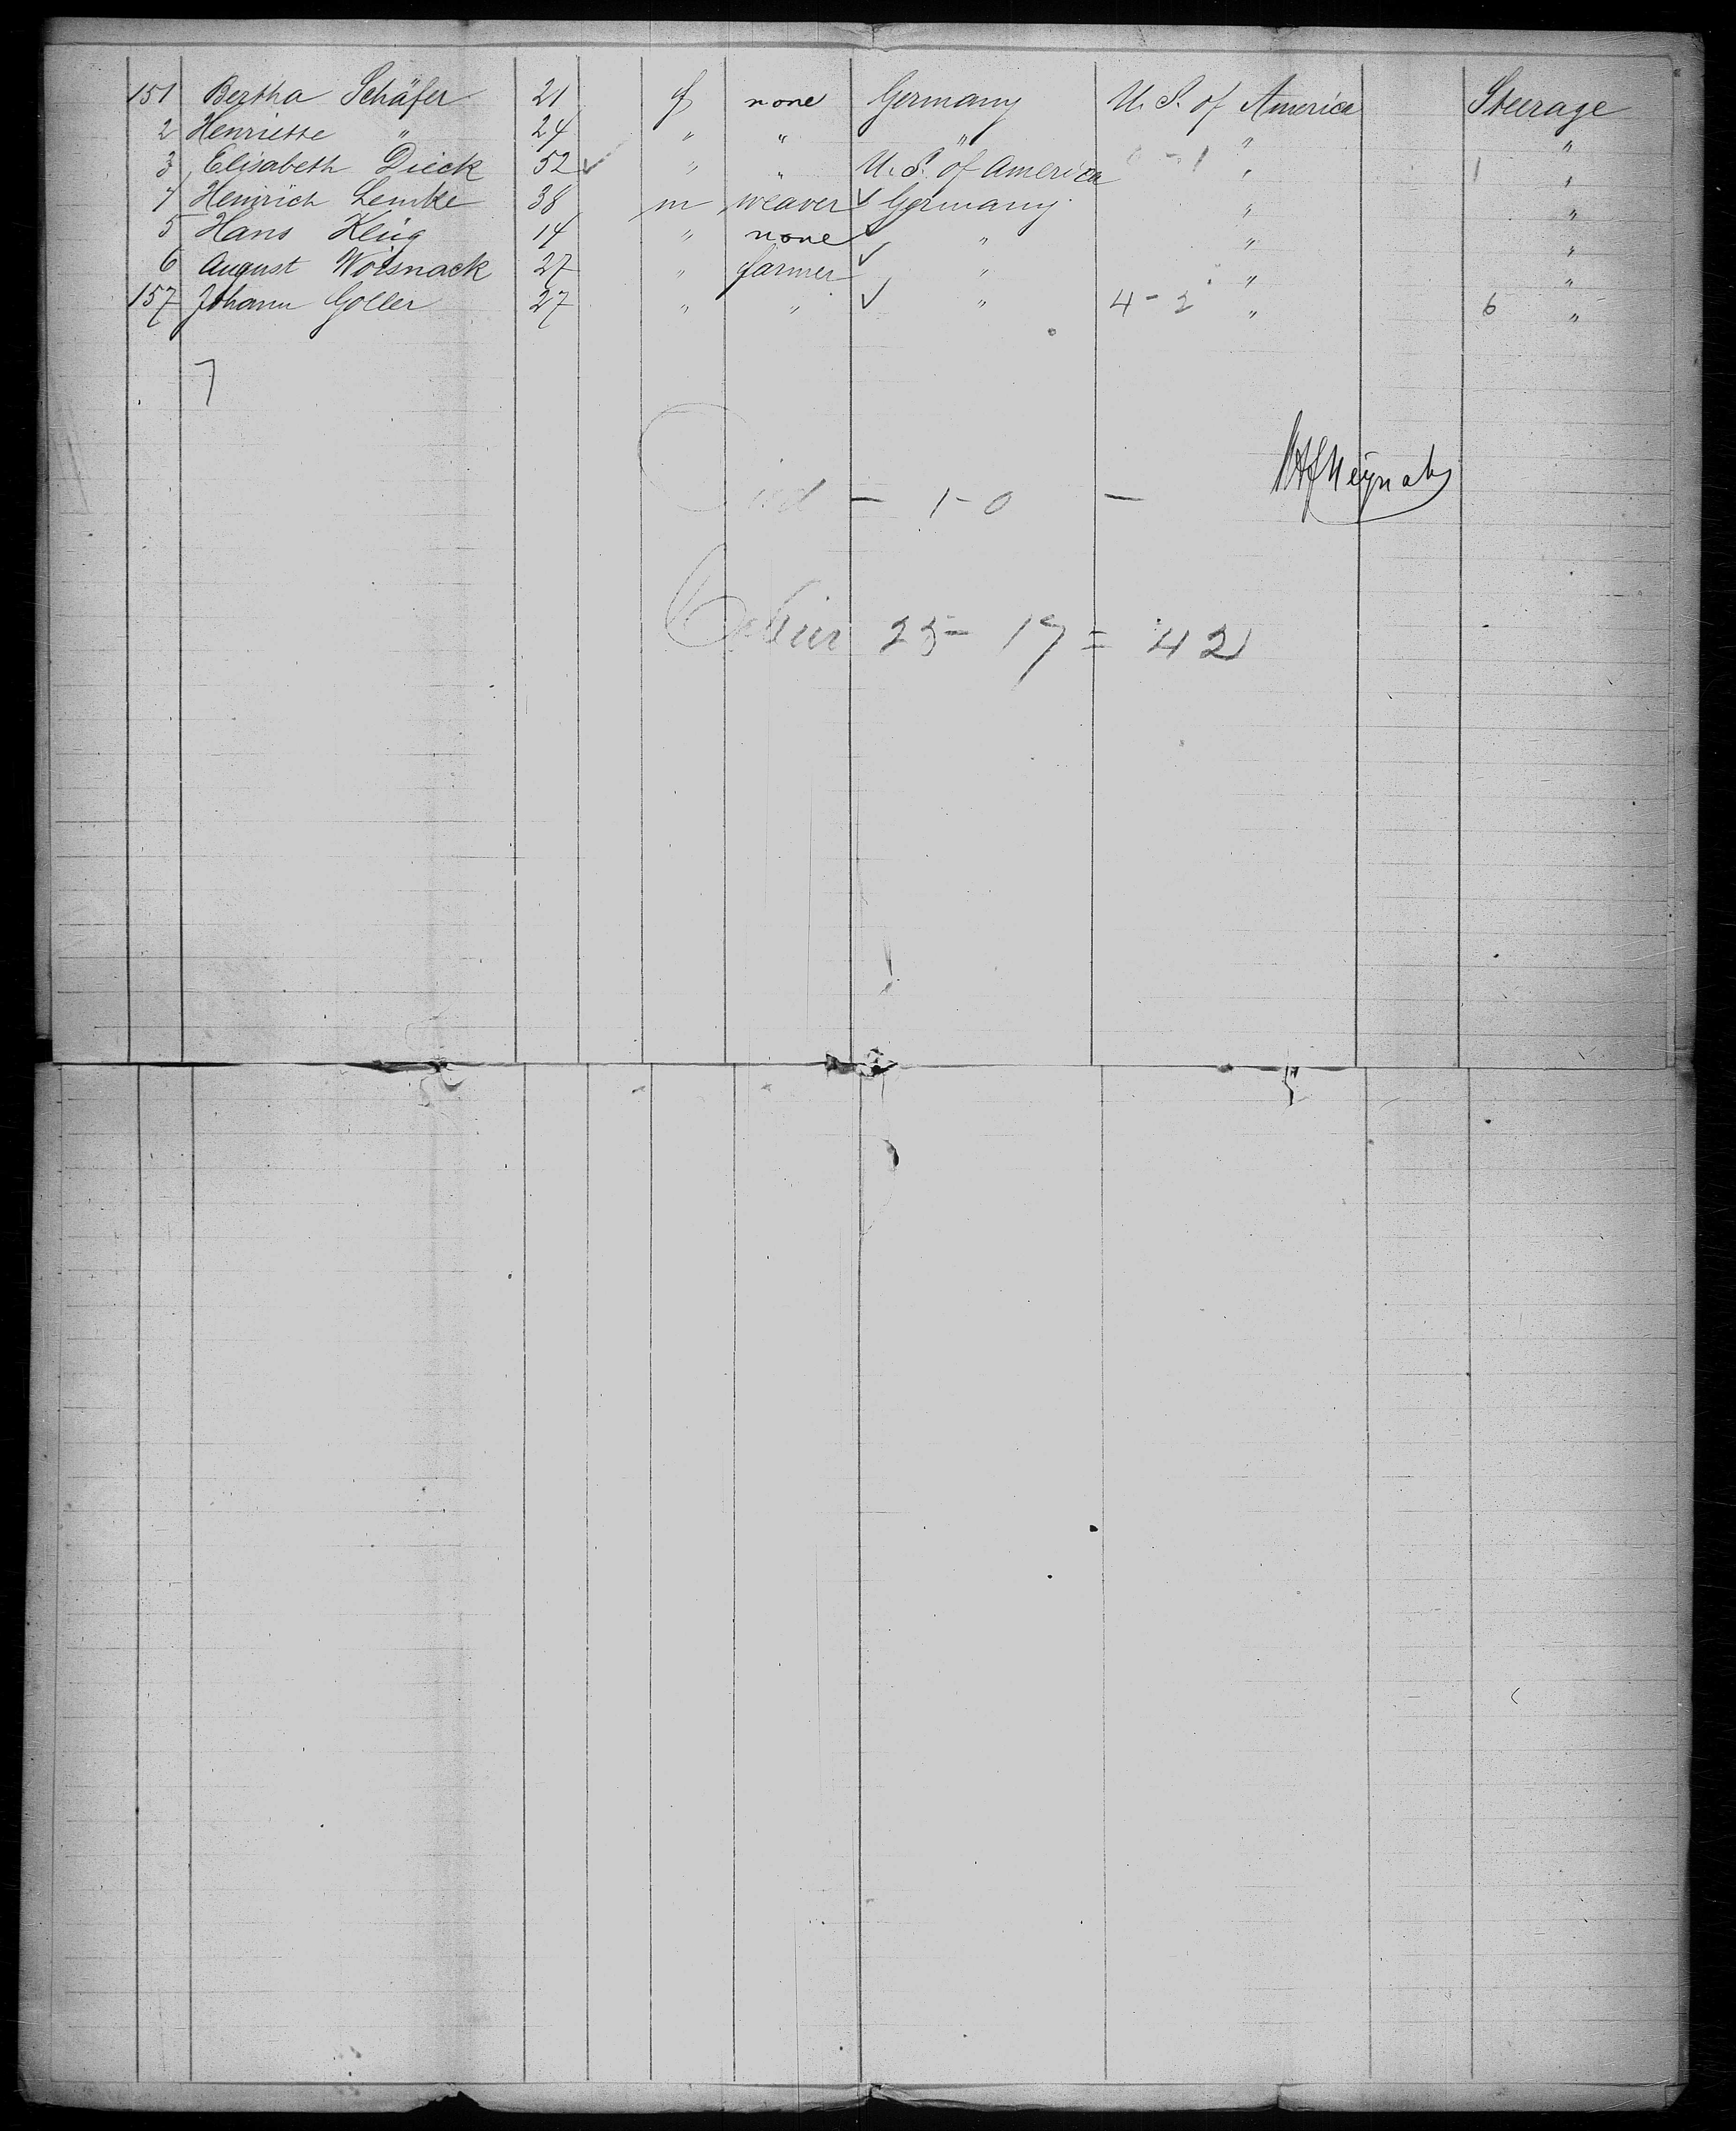 151 Bertha Schäfer 21 f none Germany U. S. of America Steerage
2 Henriette " 24 " " " " "
3 Elisabeth Dieck 52 ✓ " " U. S. of America 0 - 1 " 1 "
4 Heinrich Lemke 38 m weaver ✓ Germany " "
5 Hans Klug 14 " none ✓ " " "
6 August Woisnack 27 " farmer ✓ " " "
157 Johann Goller 27 " " ✓ " 4 - 2 " 6 "
7
Died — 1 - 0 —
Cabin 25 - 17 = 42